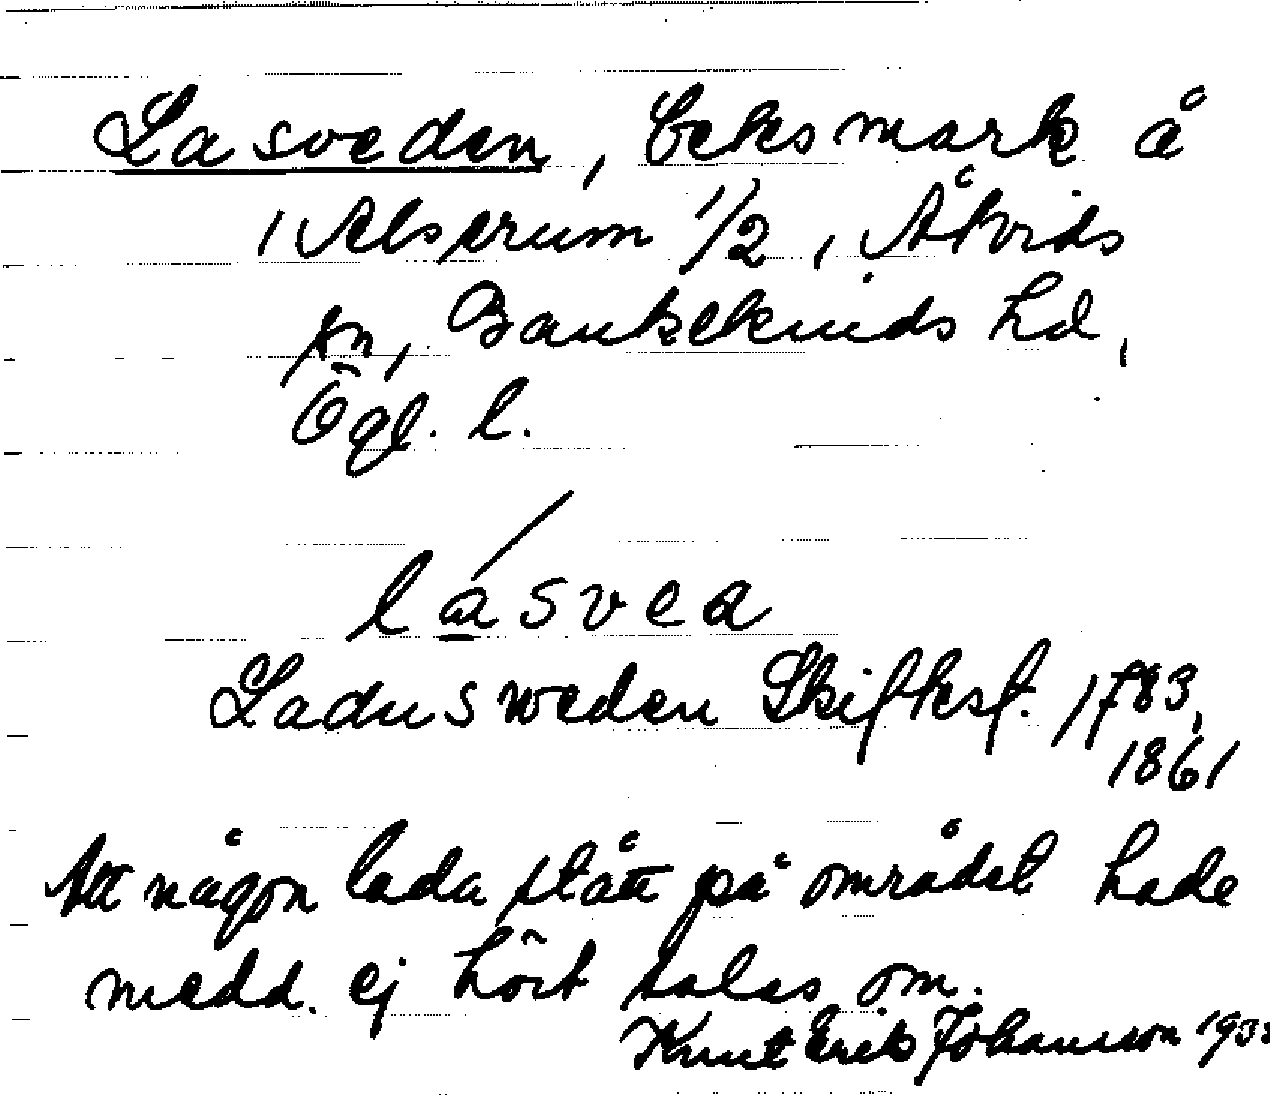 Lasveden, beksmark å
Alserum 1/2, Åtvids
sn, Bankekinds hd,
Ögl. l.
lasvea
Ladusweden Skiftesf. 1783,
1861
Att någon lada stått på området hade
medd. ej hört talas om.
Knut Erik Johansson